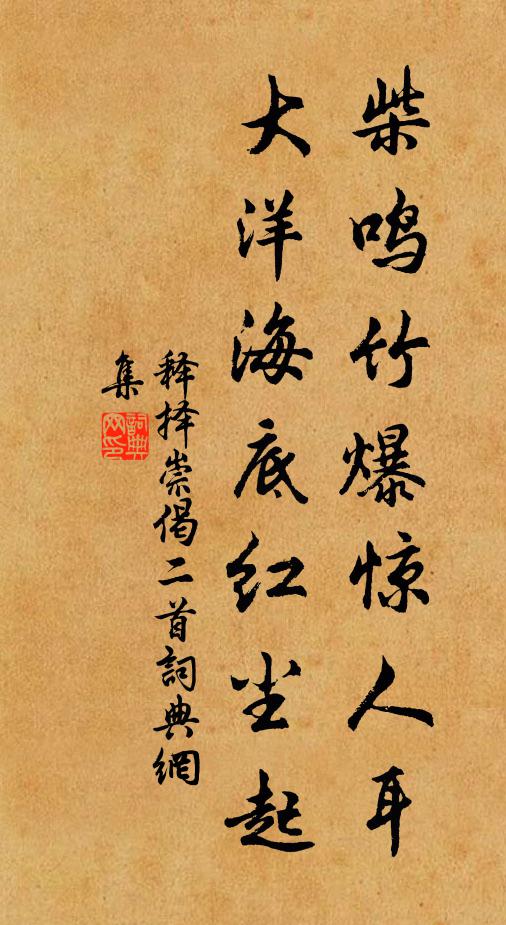 柴鸣竹爆惊人耳
大洋海底红尘起
释择崇偈二首詞典網
集
詞典网印